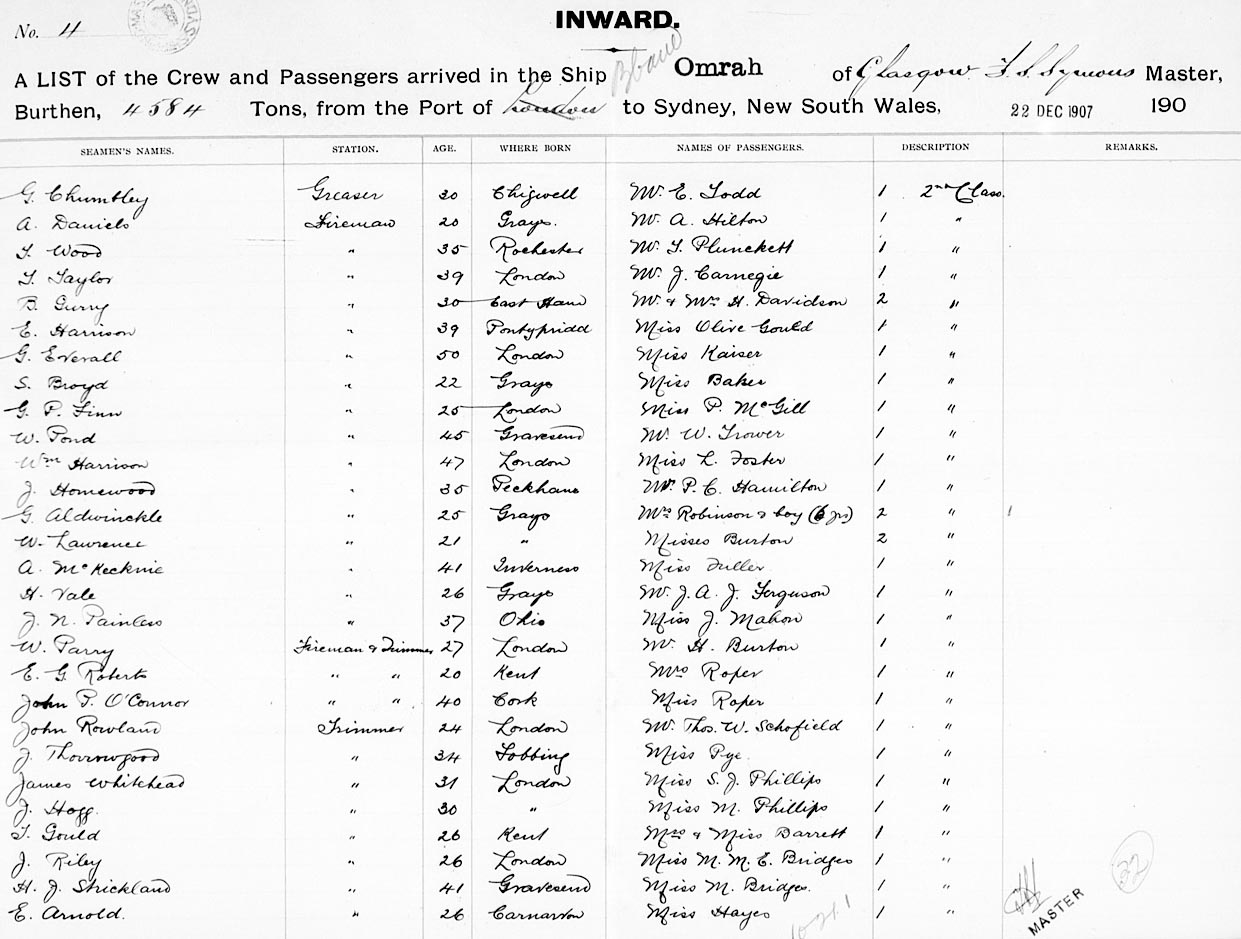 No. 4
INWARD.
Bbane
A LIST of the Crew and Passengers arrived in the Ship Omrah of Glasgow F. S. Symons Master,
Burthen, 4584 Tons, from the Port of London to Sydney, New South Wales, 22 DEC 1907 190
SEAMEN'S NAMES. STATION. AGE. WHERE BORN NAMES OF PASSENGERS. DESCRIPTION REMARKS.
G. Chumbley Greaser 30 Chigwell Mr. E. Todd 1 2nd Class.
A. Daniels Fireman 20 Grays. Mr. A. Hilton 1 "
T. Wood " 35 Rochester Mr. T. Plunckett 1 "
T. Taylor " 39 London Mr. J. Carnegie 1 "
B. Gurry " 30 East Ham Mr. & Mrs. H. Davidson 2 "
E. Harrison " 39 Pontypridd Miss Olive Gould 1 "
G. Everall " 50 London Miss Kaiser 1 "
S. Broyd " 22 Grays Miss Baker 1 "
G. P. Finn " 25 London Miss P. McGill 1 "
W. Pond " 45 Gravesend Mr. W. Trower 1 "
Wm Harrison " 47 London Miss L. Foster 1 "
J. Homewood " 35 Peckham Mr. P. C. Hamilton 1 "
G. Aldwinckle " 25 Grays Mrs Robinson & boy (6 yrs) 2 "
W. Lawrence " 21 " Misses Burton 2 "
A. McKecknie " 41 Inverness Miss Fuller 1 "
H. Vale " 26 Grays Mr. J. A. J. Ferguson 1 "
J. N. Painless " 37 Ohio Miss J. Mahon 1 "
W. Parry Fireman & Trimmer 27 London Mr. H. Burton 1 "
E. G. Roberts " " 20 Kent Mrs Roper 1 "
John P. O'Connor " " 40 Cork Miss Roper 1 "
John Rowland Trimmer 24 London Mr. Thos. W. Schofield 1 "
J. Thorowgood " 34 Fobbing Miss Pye 1 "
James Whitehead " 31 London Miss S. J. Phillips 1 "
J. Hogg. " 30 " Miss M. Phillips 1 "
T. Gould " 26 Kent Mrs & Miss Barrett 1 "
J. Riley " 26 London Miss M. M. E. Bridges 1 "
H. J. Strickland " 41 Gravesend Miss M. Bridges. 1 "
E. Arnold. " 26 Carnarvon Miss Hayes 1 "
32
MASTER